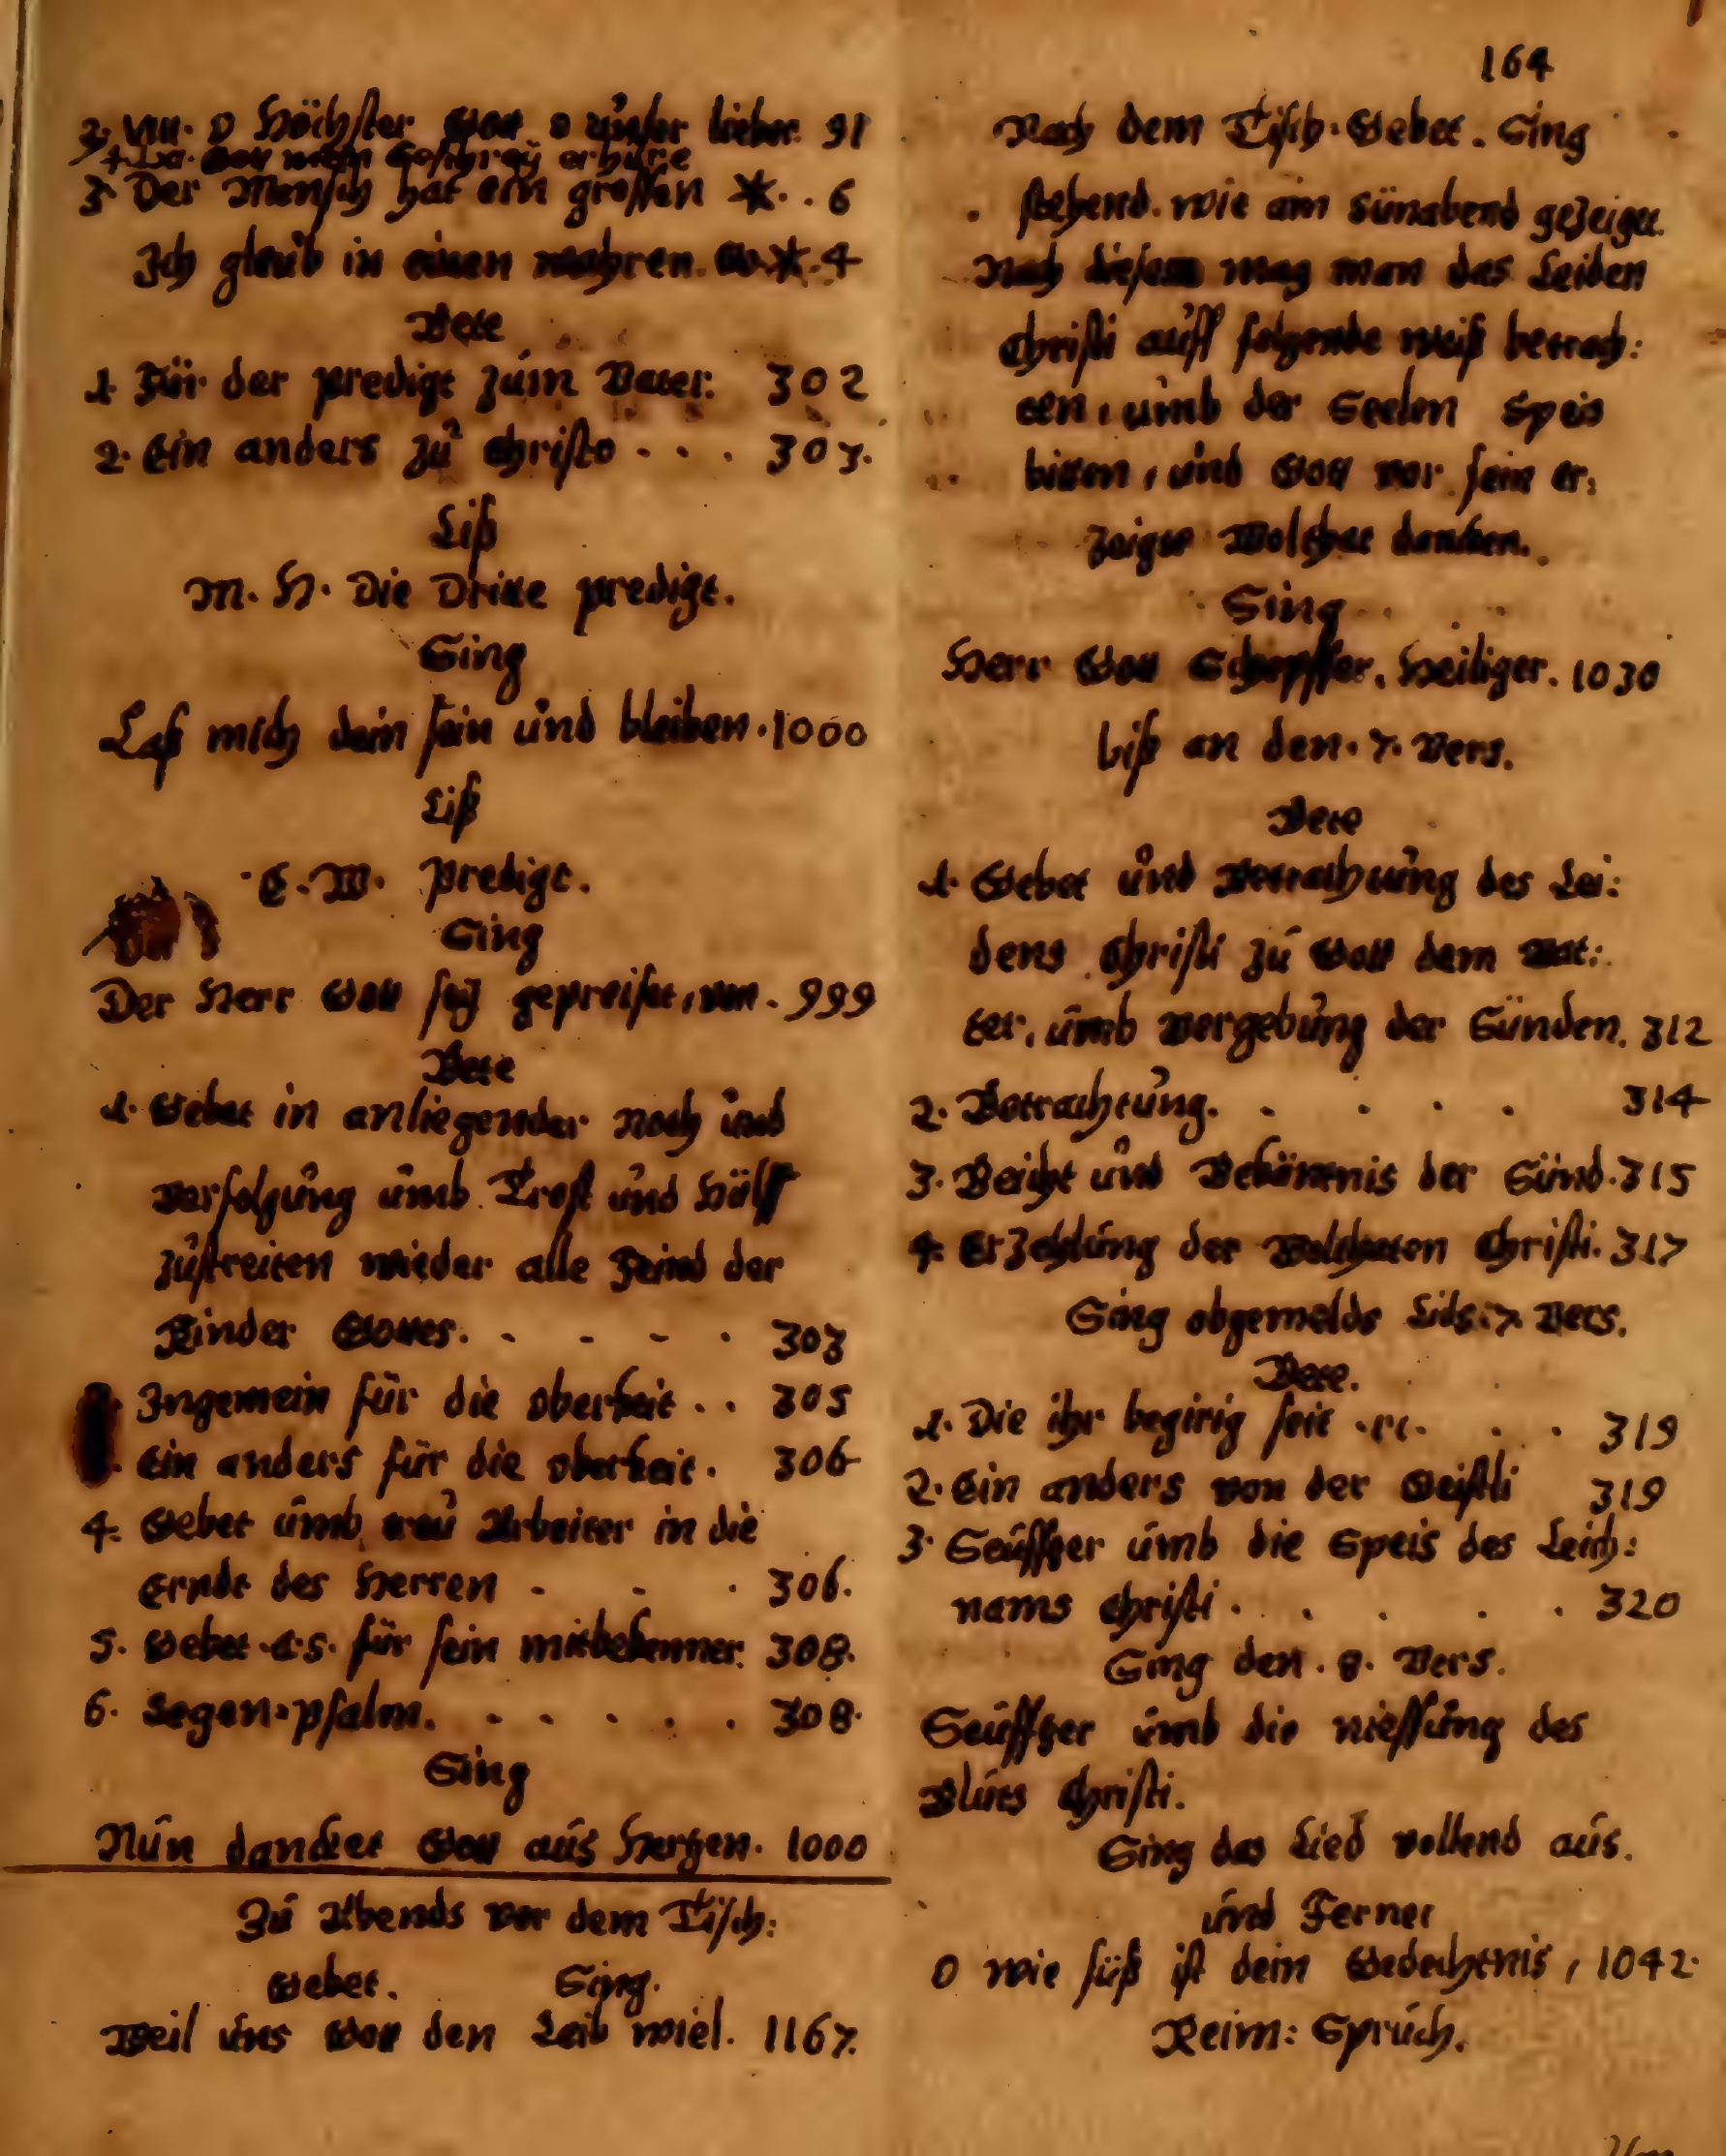 2. VIII. O Höchster Gott, o unser lieber. 91
Gott mein Geschrey erhöre
3. Der Mensch hat ein grossen *. . 6
Ich glaub in einen wahren. G. *. 4
Bete
1. Für der predigt zum Vater. 302
2. Ein anders zu Christo . . . 303.
Liß
M. H. Die Dritte predigt.
Sing
Laß mich dein sein und bleiben. 1000
Liß
C. W. predigt.
Sing
Der Herr Gott sey gepreiset, von. 999
Bete
1. Gebet in anliegender noth und
verfolgung umb Trost und Hülff
zustreiten wieder alle Feind der
Kinder Gottes. . . . . 303
Ingemein für die oberkeit . . 305
Ein anders für die oberkeit. 306
4. Gebet umb treu Arbeiter in die
Ernde des Herren . . . 306.
5. Gebet C. S. für sein mitbekenner. 308.
6. Segen=psalm. . . . . . 308.
Sing
Nun dancket Gott aus Hertzen. 1000
Zu Abends vor dem Tisch:
Gebet. Sing.
Weil uns Gott den Leib wiel. 1167.
164
Nach dem Tisch. Gebet. Sing
stehend. wie am Sünabend gezeiget.
Nach diesem mag man das Leiden
Christi auff folgende weiß betrach:
ten, umb der Seelen Speis
bitten, und Gott vor sein er:
zeigte Wolthat dancken.
Sing
Herr Gott Schöpffer, Heiliger. 1030
biß an den. 7. Vers.
Bete
1. Gebet und Betrachtung des Lei:
dens Christi zu Gott dem Vat:
ter, umb vergebung der Sünden. 312
2. Betrachtung. . . . . 314
3. Beicht und Bekäntnis der Sünd. 315
4. Erzehlung der Wolthaten Christi. 317
Sing obgemelds Lids. 7. Vers.
Bete.
1. Die ihr begirig seit .rc. . . 319
2. Ein anders von der Geistli 319
3. Seuffzer umb die Speis des Leich:
nams Christi . . . . . 320
Sing den. 8. Vers.
Seuffzer umb die niessung des
Bluts Christi.
Sing das Lied vollend aus.
und Ferner
O wie süß ist dein Gedechtnis, 1042.
Reim: Spruch.